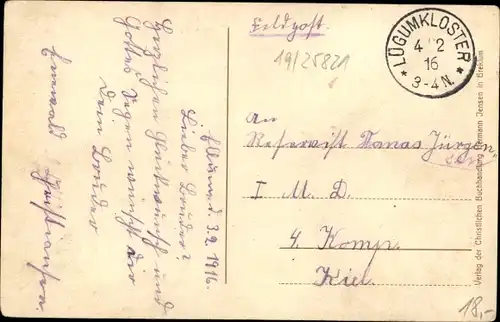 Feldpost.
19/25821
LÜGUMKLOSTER
4 2
16
3-4 N.
An
Reservist Tomas Jürgensen
I M. D.
4. Komp.
Kiel.
3.2.1916.
Lieber Bruder!
Herzlichen Glückwunsch und
Gottes Segen wünscht dir
Dein Bruder
Christiansen.
Verlag der Christlichen Buchhandlung Hermann Jensen in Breklum
18,-